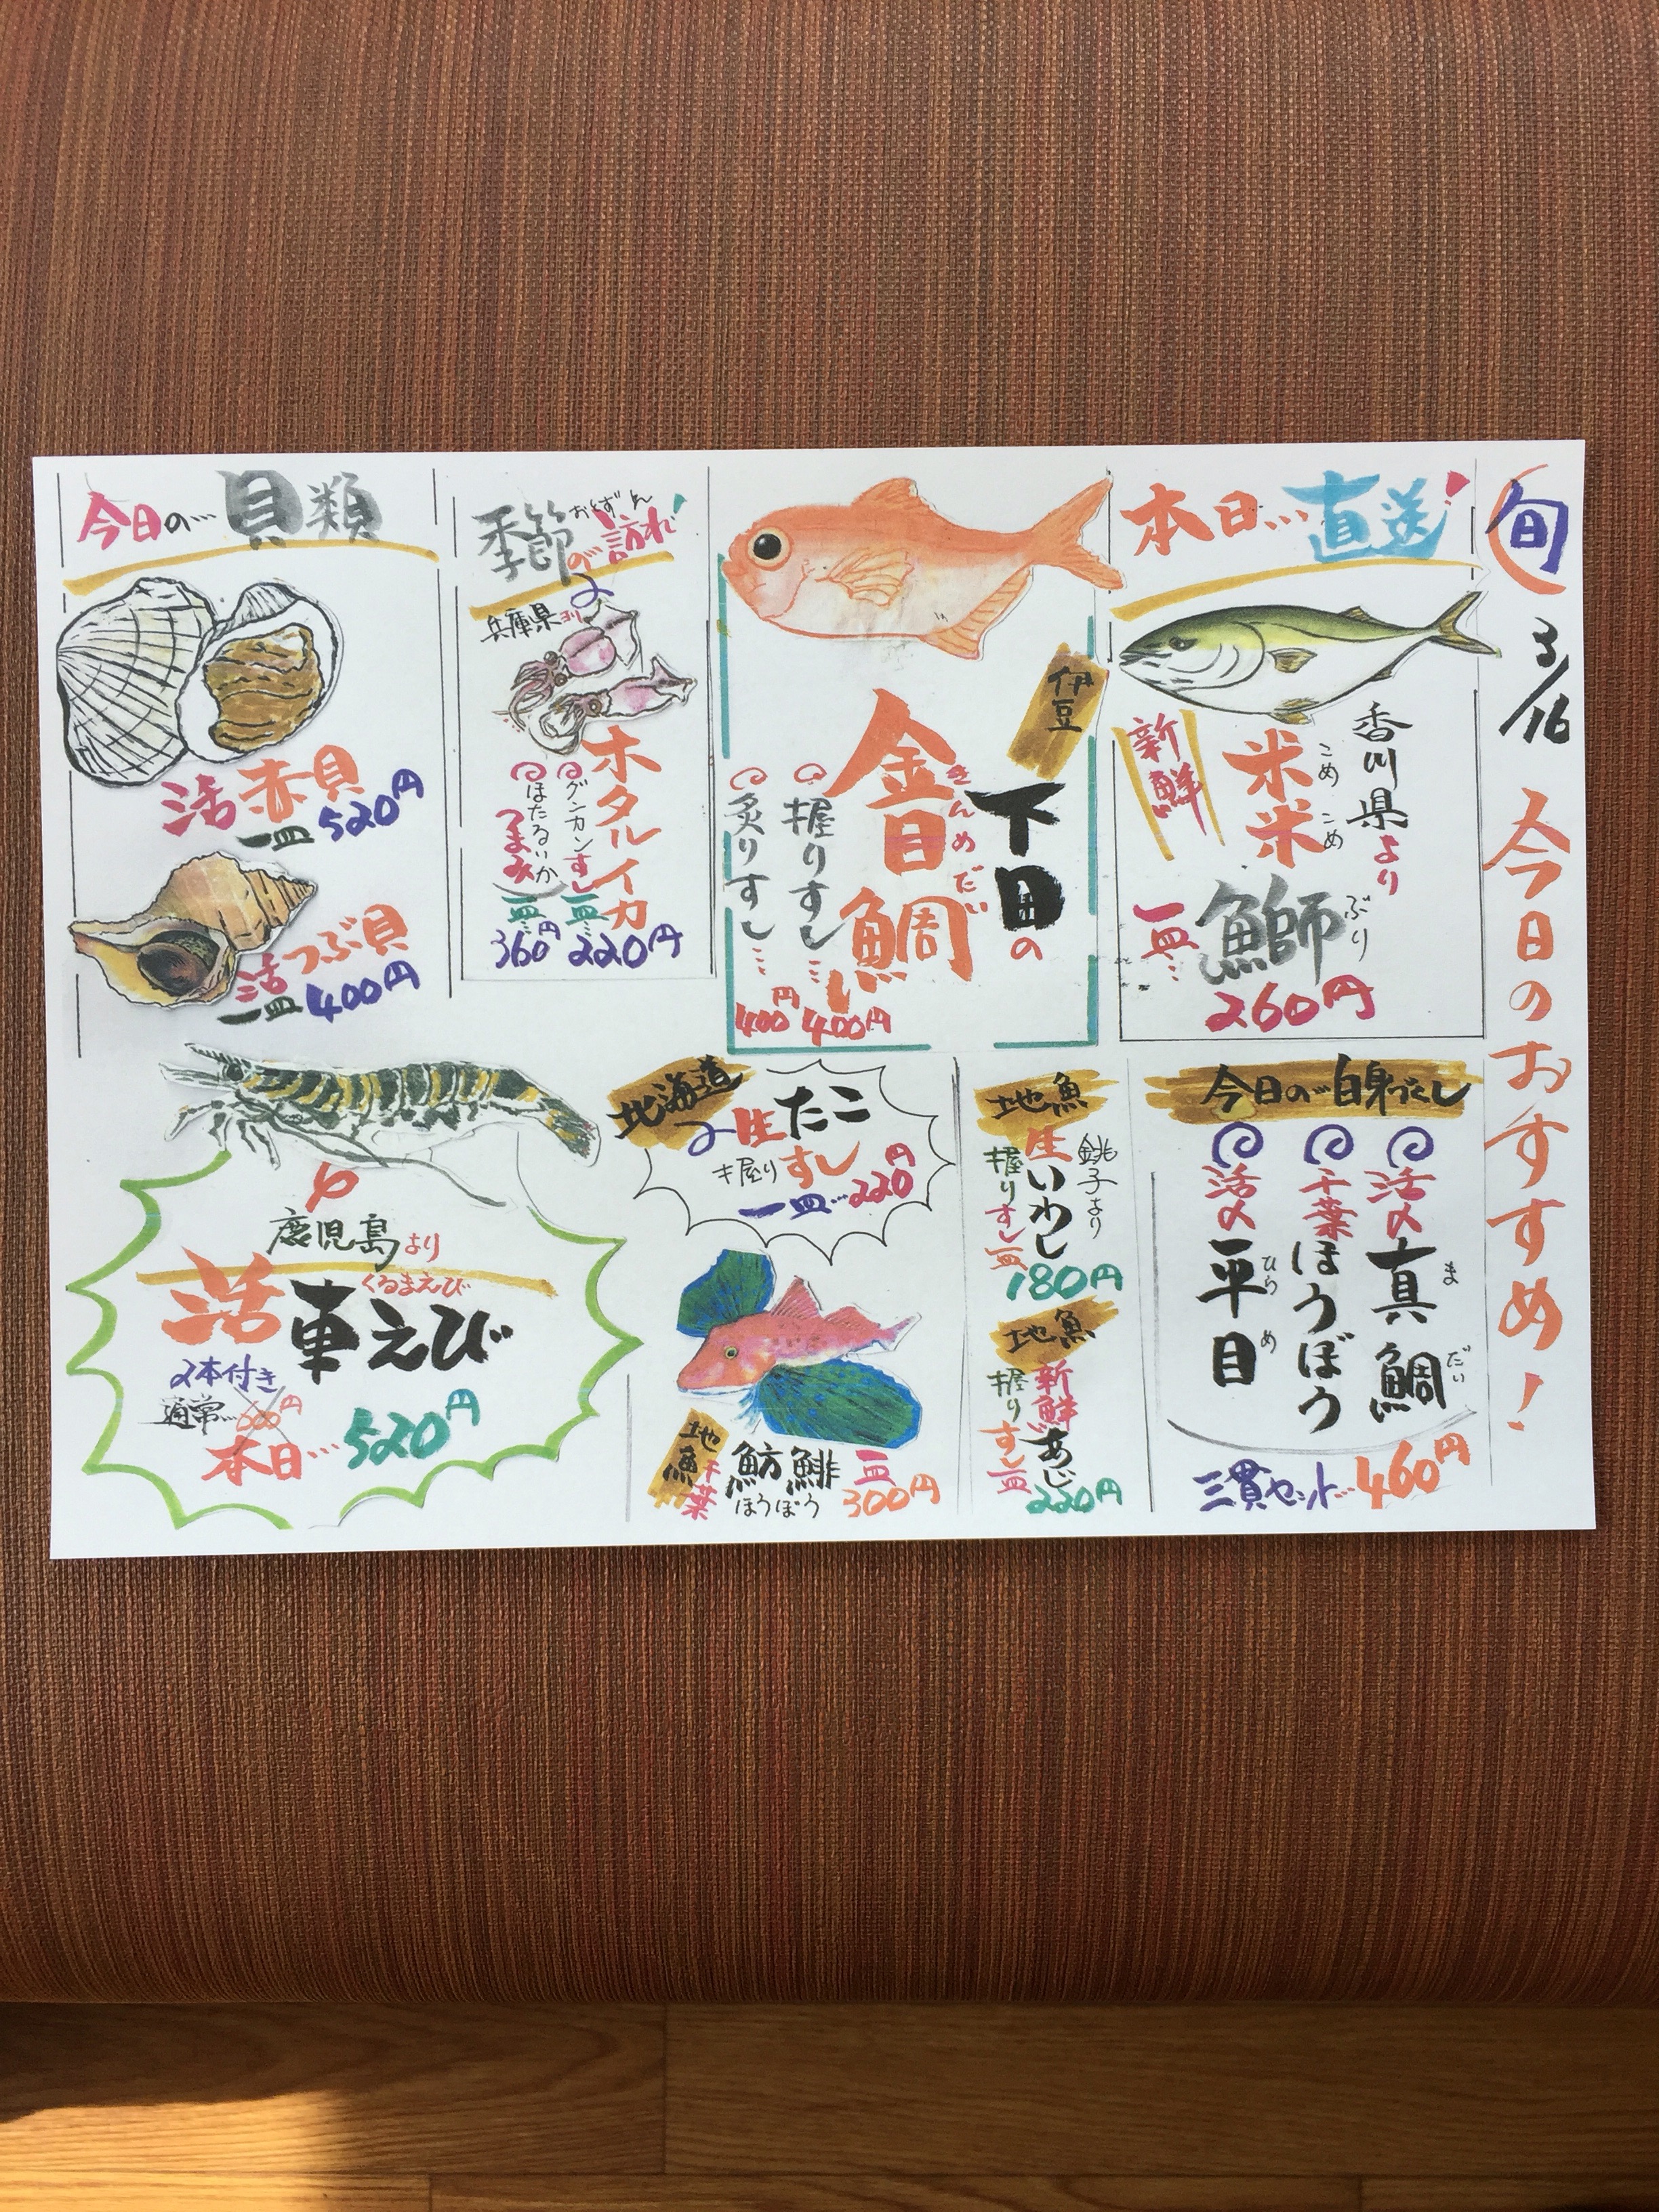 旬
3/16
今日のおすすめ!
本日…直送!
香川県より
こめこめ
米米
ぶり
鰤
新鮮
一皿…
260円
伊豆
下田の
きんめだい
金目鯛
握りすし…400円
炙りすし…400円
おとずれ
季節の訪れ!
兵庫県ヨリ
ホタルイカ
グンカンすし
一皿…
220円
ほたるいか
つまみ
一皿…
360円
今日の…貝類
活赤貝
一皿520円
活つぶ貝
一皿400円
今日の…白身づくし
活〆真鯛
まだい
千葉ほうぼう
活〆平目
ひらめ
三貫セット…460円
地魚
銚子より
生いわし
握りすし一皿
180円
地魚
新鮮あじ
握りすし一皿
220円
北海道
生たこ
握りすし
一皿…220円
地魚
千葉
魴鯡
ほうぼう
一皿
300円
鹿児島より
くるまえび
活車えび
2本付き
通常…
本日…520円